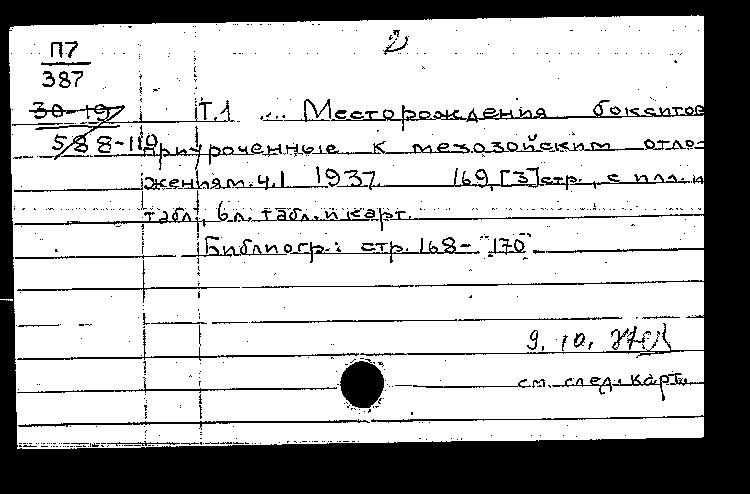 2
П7
387
30-19
588-110
Т.1 ... Месторождения бокситов
приуроченные к мезозойским отло-
жениям. ч.1 1937. 169, [3] стр., с илл. и
табл., 6 л. табл. и карт.
Библиогр.: стр. 168-"170"
9. 10.
см. след. карт.